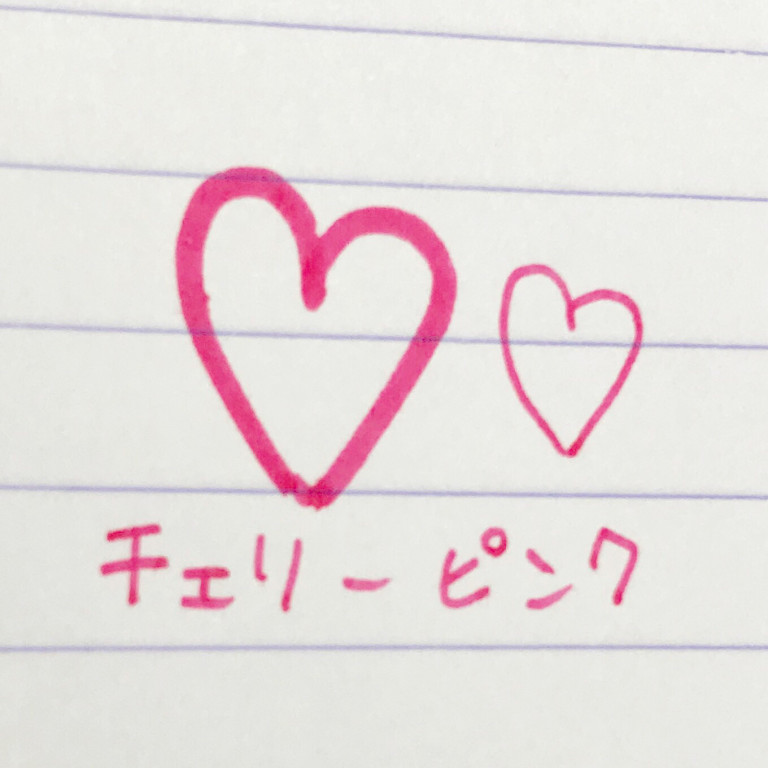 チェリーピンク